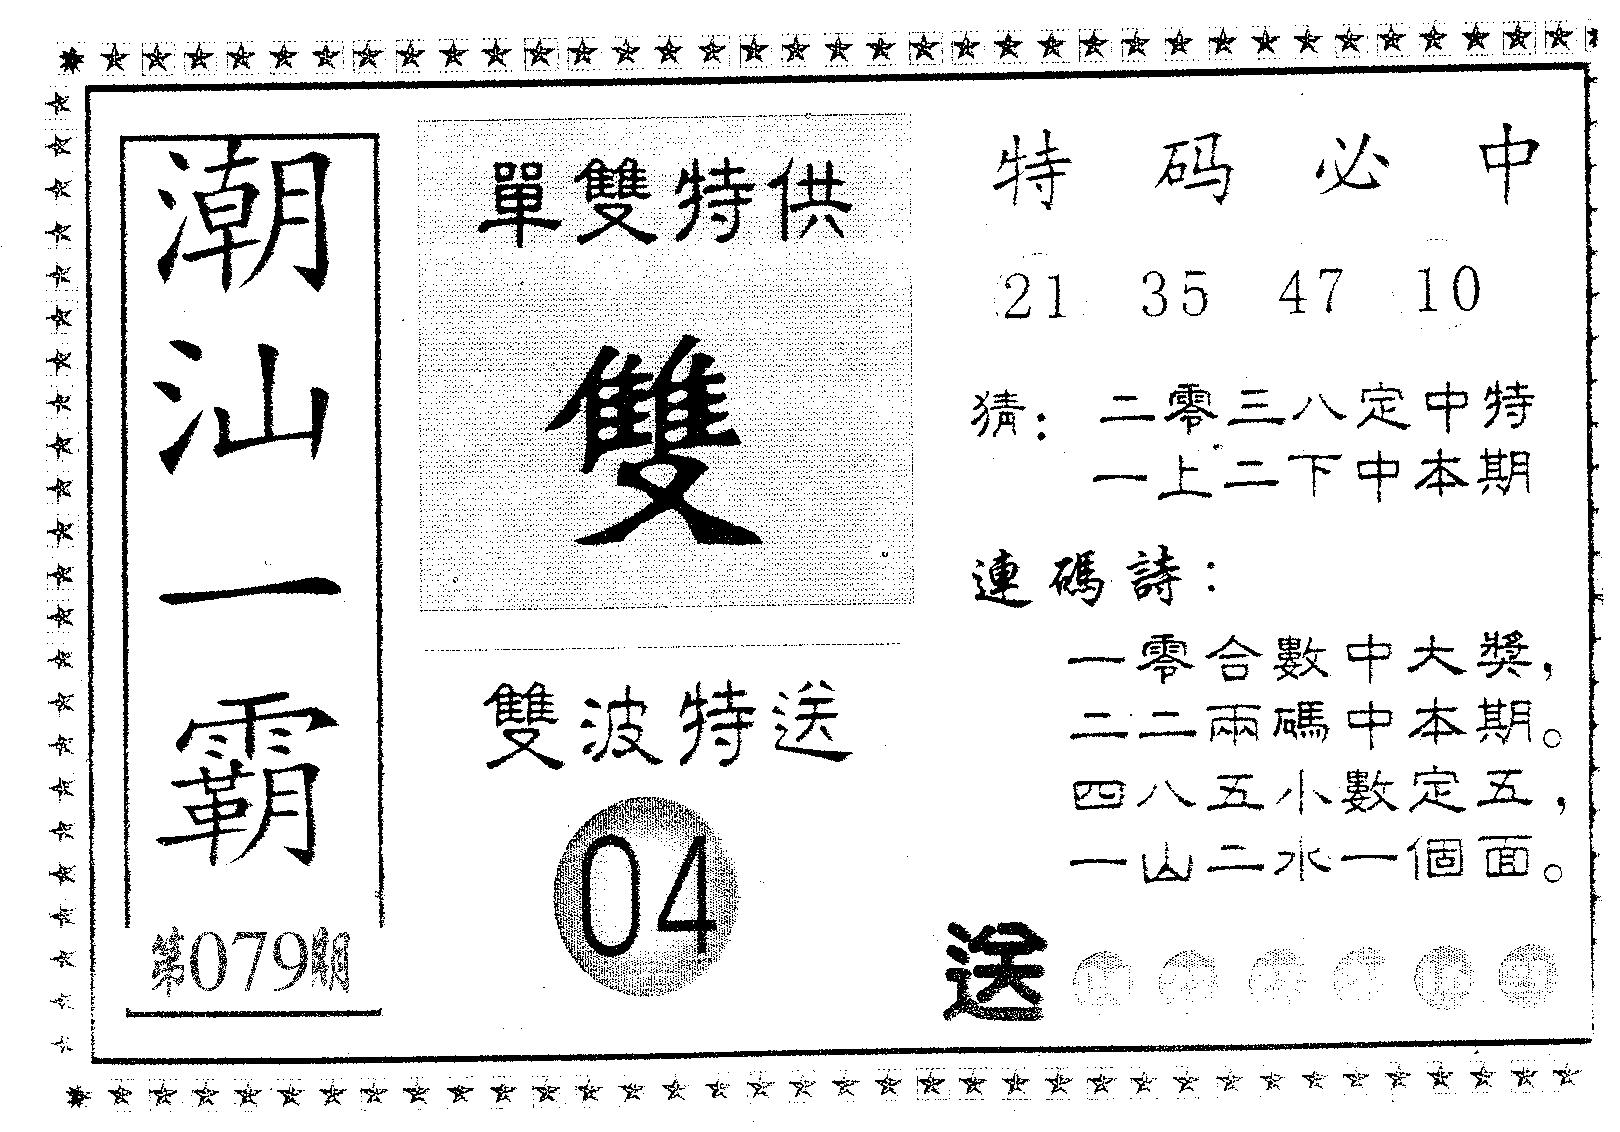 潮汕一霸
第079期
單雙特供
雙
雙波特送
04
特码必中
21 35 47 10
猜：二零三八定中特
一上二下中本期
連碼詩：
一零合數中大獎，
二二兩碼中本期。
四八五小數定五，
一山二水一個面。
送